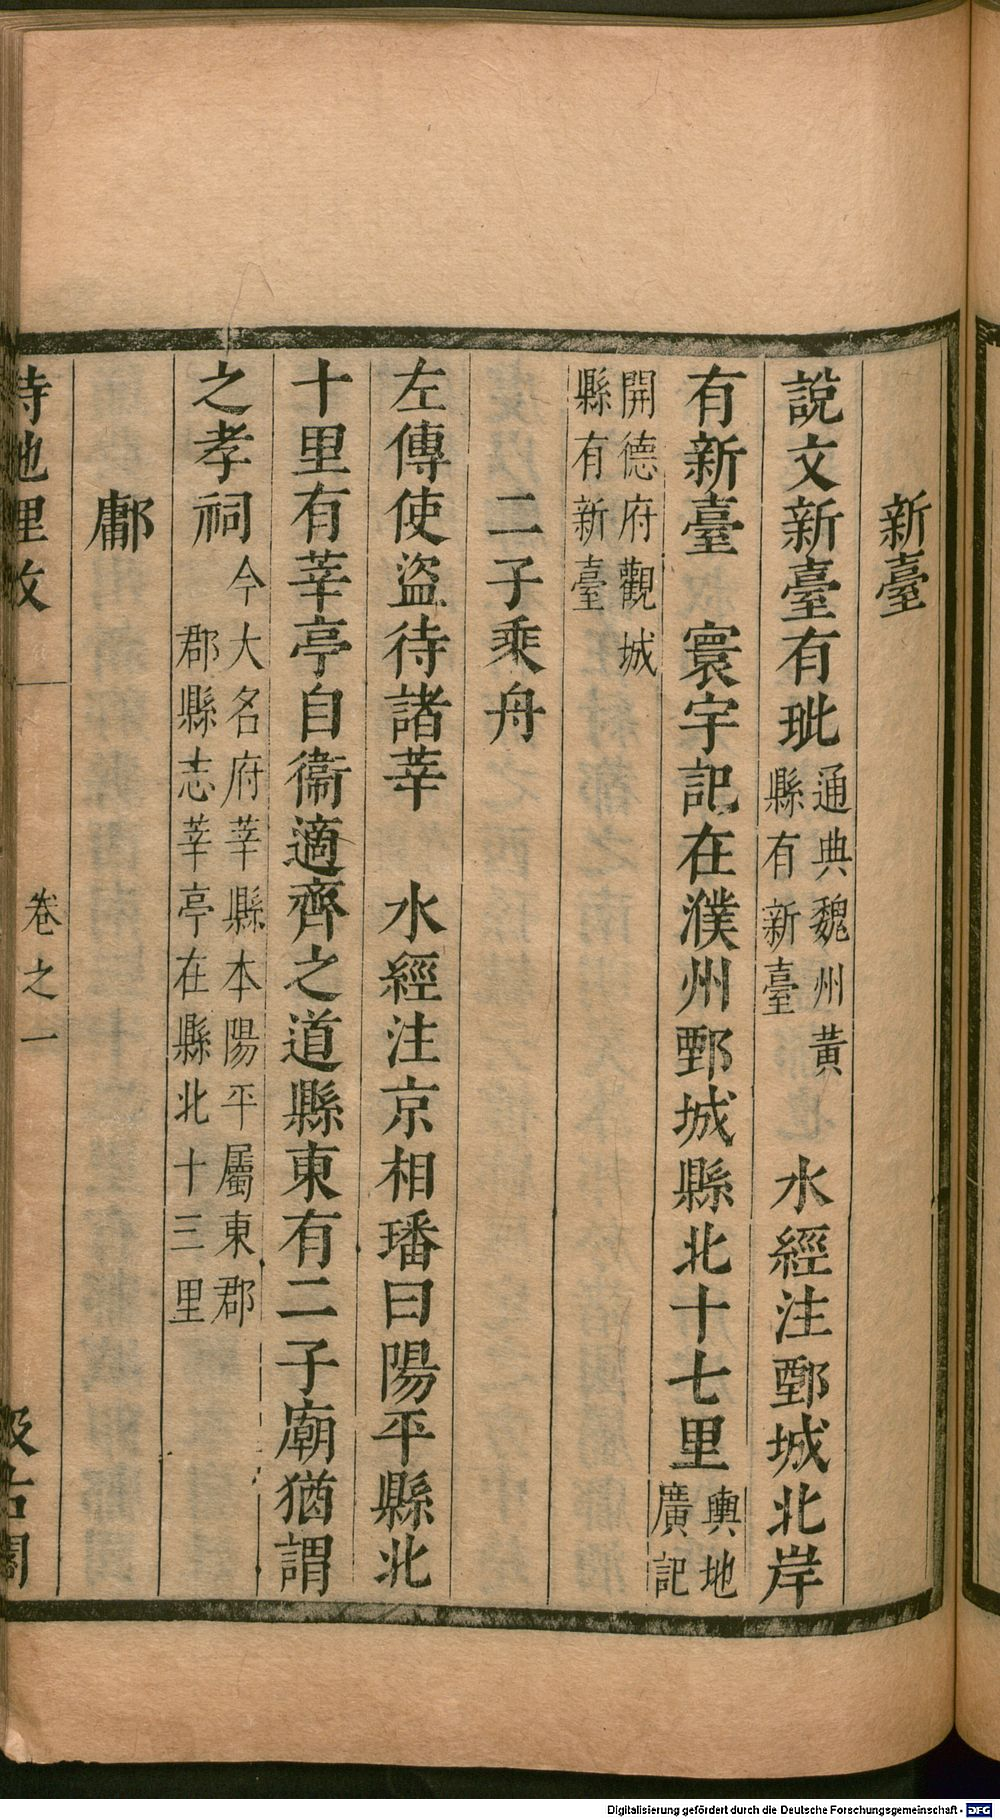 新臺
說文新臺有玼通典魏州黃縣有新臺 水經注鄄城北岸
有新臺 寰宇記在濮州鄄城縣北十七里輿地廣記
開德府觀城縣有新臺
二子乘舟
左傳使盜待諸莘 水經注京相璠曰陽平縣北
十里有莘亭自衞適齊之道縣東有二子廟猶謂
之孝祠今大名府莘縣本陽平屬東郡郡縣志莘亭在縣北十三里
鄘
詩地理攷 卷之一 汲古閣
Digitalisierung gefördert durch die Deutsche Forschungsgemeinschaft - DFG